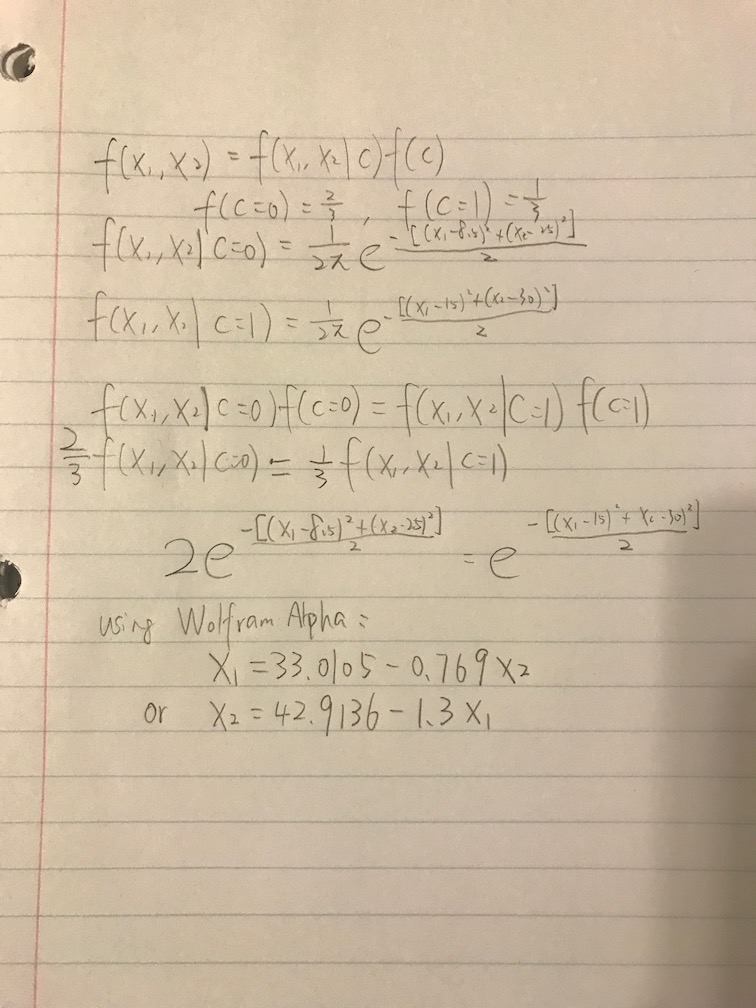 f(x₁, x₂) = f(x₁, x₂ | c) f(c)
f(c=0) = 2/3 , f(c=1) = 1/3
f(x₁, x₂ | c=0) = 1/2π e^(-[(x₁-8.5)²+(x₂-25)²]/2)
f(x₁, x₂ | c=1) = 1/2π e^(-[(x₁-15)²+(x₂-30)²]/2)
f(x₁, x₂ | c=0) f(c=0) = f(x₁, x₂ | c=1) f(c=1)
2/3 f(x₁, x₂ | c=0) = 1/3 f(x₁, x₂ | c=1)
2e^(-[(x₁-8.5)²+(x₂-25)²]/2) = e^(-[(x₁-15)²+x₂-30)²]/2)
using Wolfram Alpha:
x₁ = 33.0105 - 0.769 x₂
or x₂ = 42.9136 - 1.3 x₁